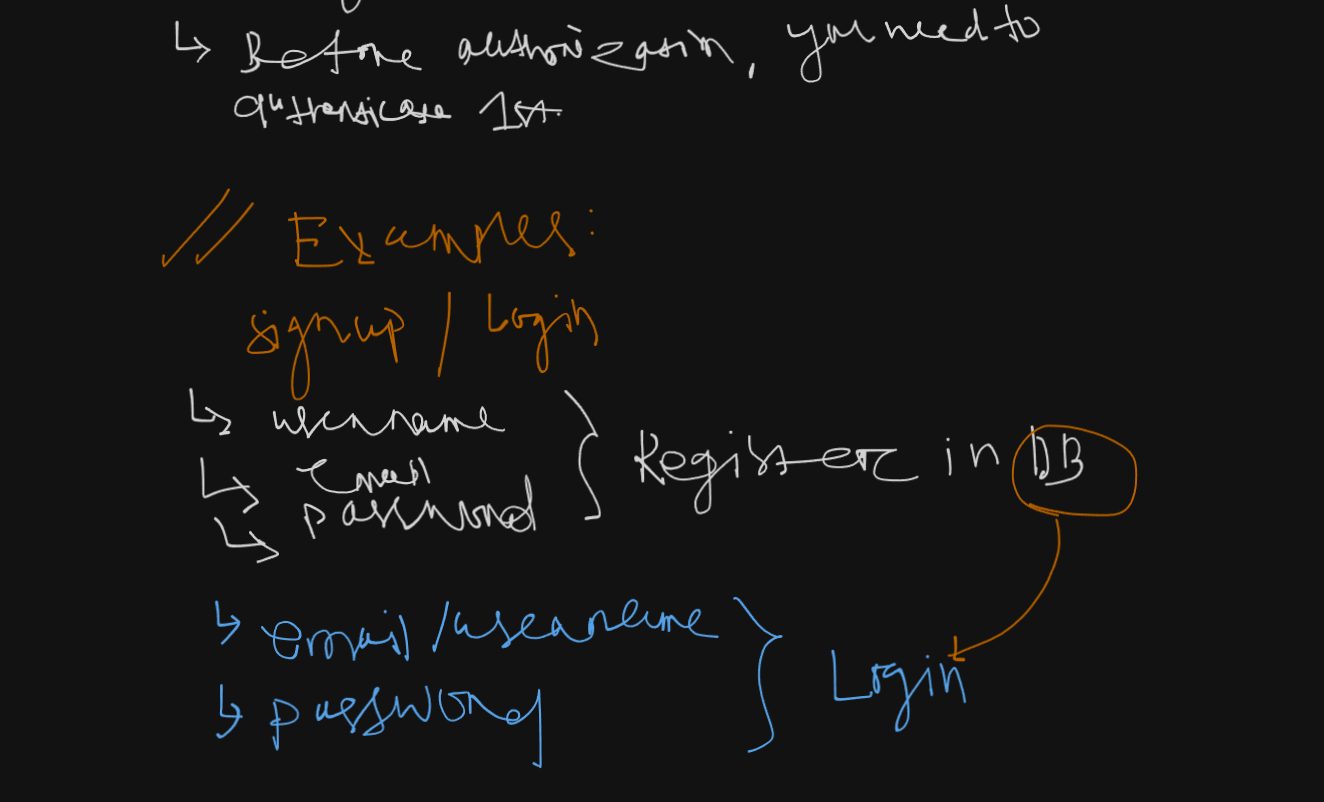 ↳ Before authorization, you need to
authenticate 1st.
// Examples:
signup / Login
↳ username
↳ Email
↳ password
Register in DB
↳ email / username
↳ password
Login